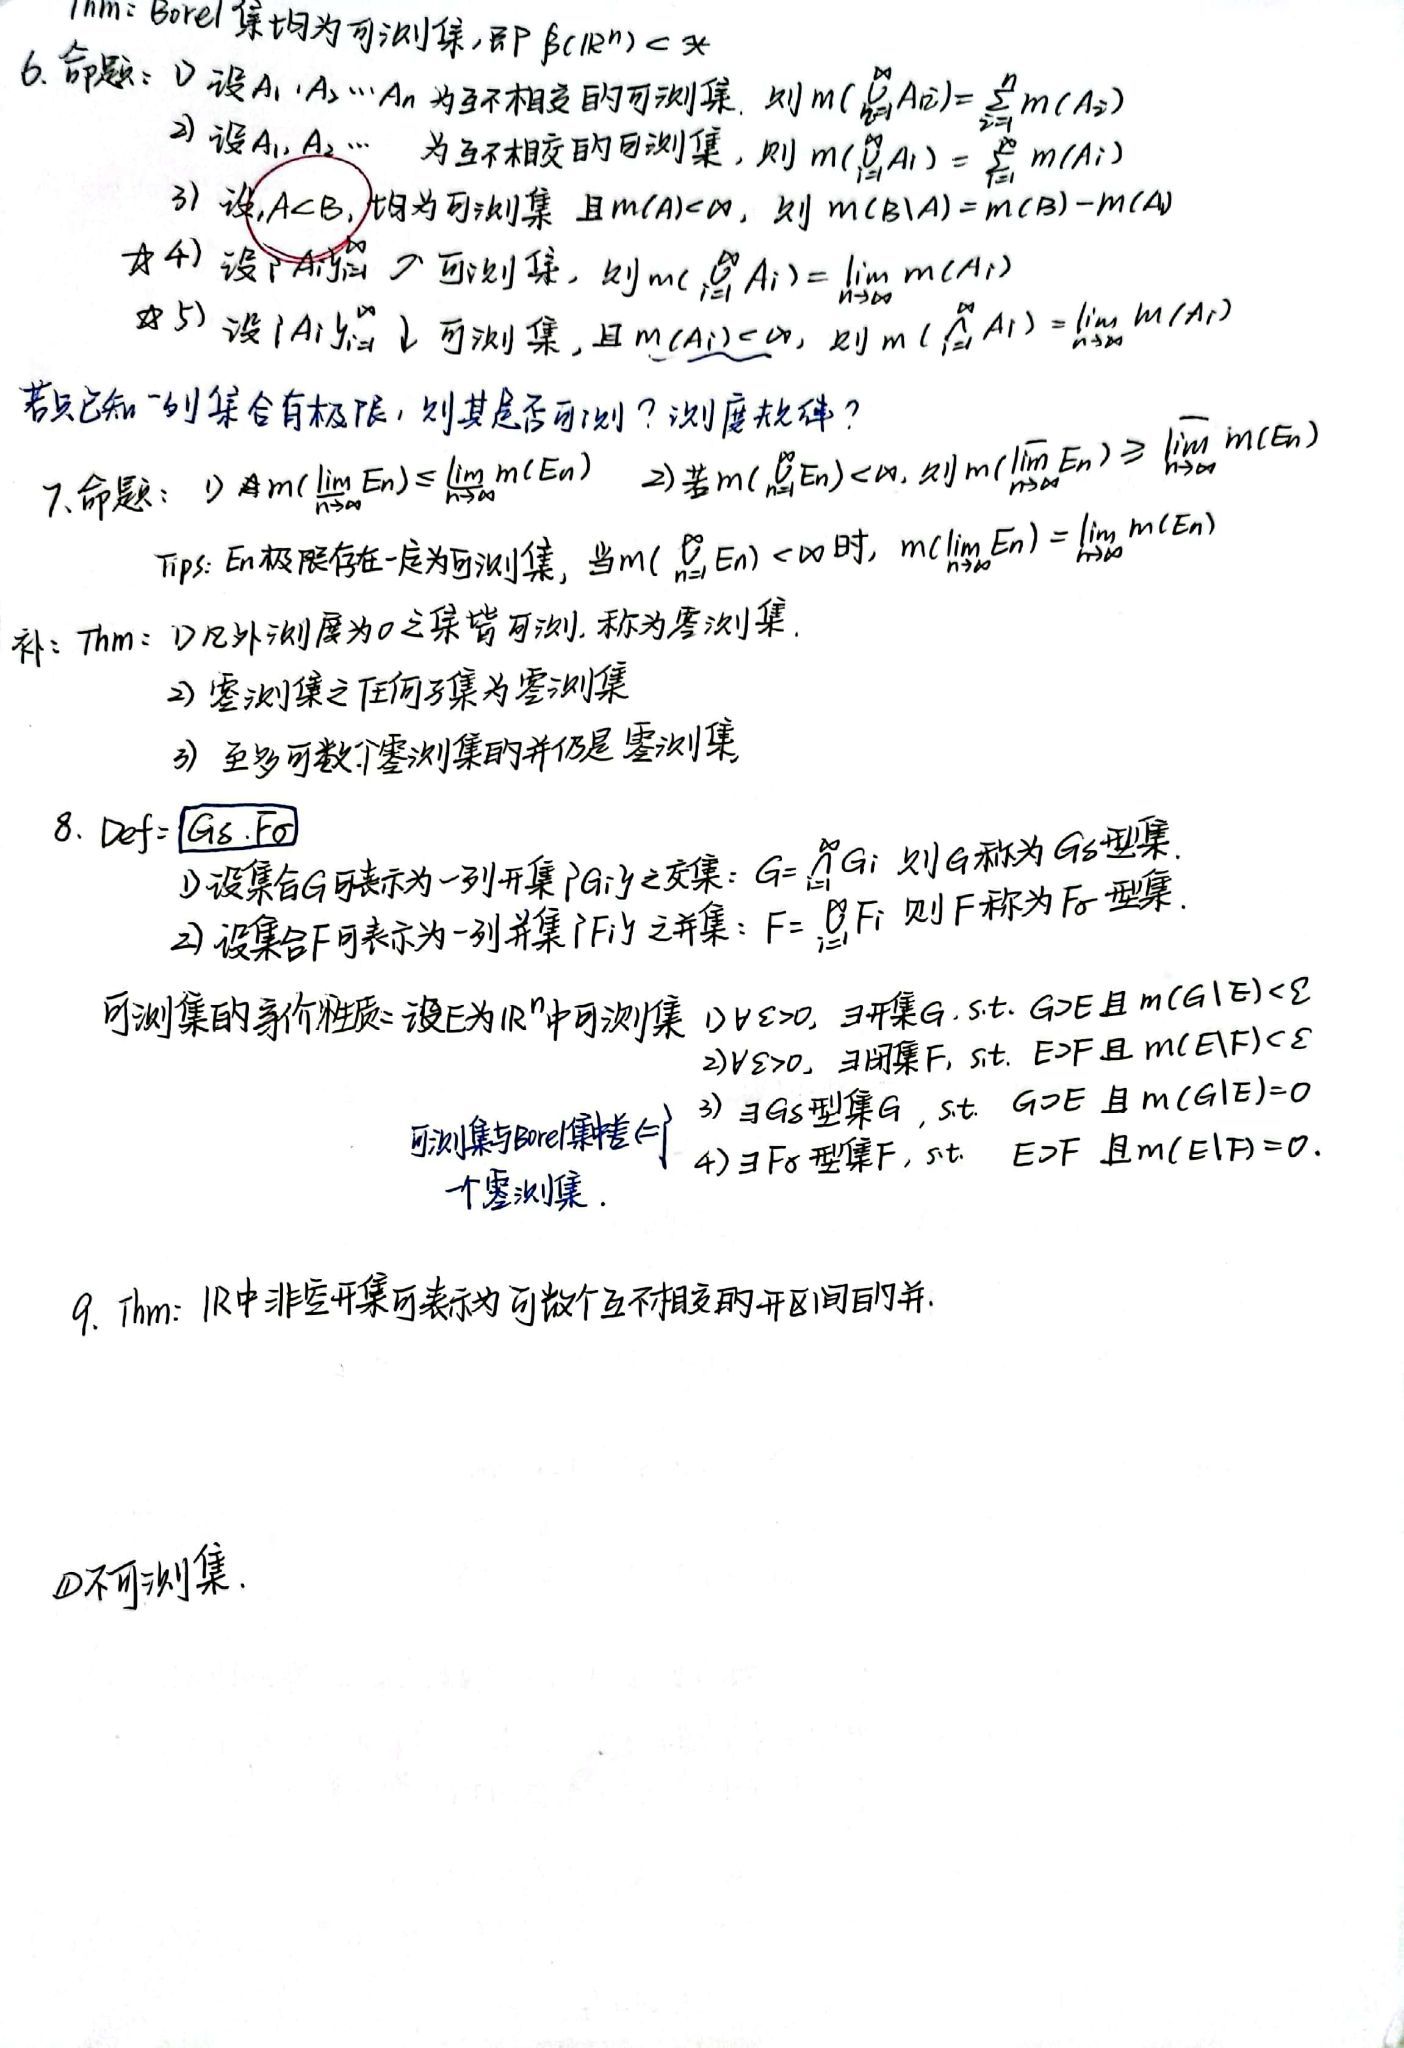 Thm: Borel集均为可测集,即 β(ℝⁿ) ⊂
6. 命题: 1) 设A₁,A₂…Aₙ 为互不相交的可测集. 则 m(⋃Ai) = ∑ᵢ₌₁ⁿ m(Ai)
2) 设A₁,A₂… 为互不相交的可测集, 则 m(⋃ᵢ₌₁^∞ Ai) = ∑ᵢ₌₁^∞ m(Ai)
3) 设,A⊂B, 均为可测集 且m(A)<∞, 则 m(B\A)=m(B)-m(A)
☆4) 设{Ai}ᵢ₌₁^∞ ↗ 可测集, 则 m(⋃ᵢ₌₁^∞ Ai) = lim_{n→∞} m(Ai)
☆5) 设{Ai}ᵢ₌₁^∞ ↓ 可测集, 且 m(Ai)<∞, 则 m(⋂ᵢ₌₁^∞ Ai) = lim_{n→∞} m(Ai)
若只已知一列集合有极限, 则其是否可测? 测度?
7. 命题: 1) m(\underline{lim}_{n→∞} En) ≤ \underline{lim}_{n→∞} m(En) 2) 若m(⋃ₙ₌₁^∞ En)<∞, 则 m(\overline{lim}_{n→∞} En) ≥ \overline{lim}_{n→∞} m(En)
Tips: En极限存在一定为可测集, 当m(⋃ₙ₌₁^∞ En)<∞时, m(lim_{n→∞} En) = lim_{n→∞} m(En)
补: Thm: 1) 凡外测度为0之集皆可测. 称为零测集.
2) 零测集之任何子集为零测集
3) 至多可数个零测集的并仍是零测集
8. Def: Gδ.Fσ
1) 设集合G可表示为一列开集{Gi}之交集: G=⋂ᵢ₌₁^∞ Gi 则G称为Gδ型集.
2) 设集合F可表示为一列并集{Fi}之并集: F=⋃ᵢ₌₁^∞ Fi 则F称为Fσ型集.
可测集的等价性质: 设E为ℝⁿ中可测集 1) ∀ε>0, ∃开集G. s.t. G⊃E且 m(G\E)<ε
2) ∀ε>0, ∃闭集F, s.t. E⊃F且 m(E\F)<ε
3) ∃Gδ型集G, s.t. G⊃E 且 m(G\E)=0
可测集与Borel集相差 ⇐
4) ∃Fσ型集F, s.t. E⊃F 且m(E\F)=0.
一个零测集.
9. Thm: ℝ中非空开集可表示为可数个互不相交的开区间的并.
① 不可测集.